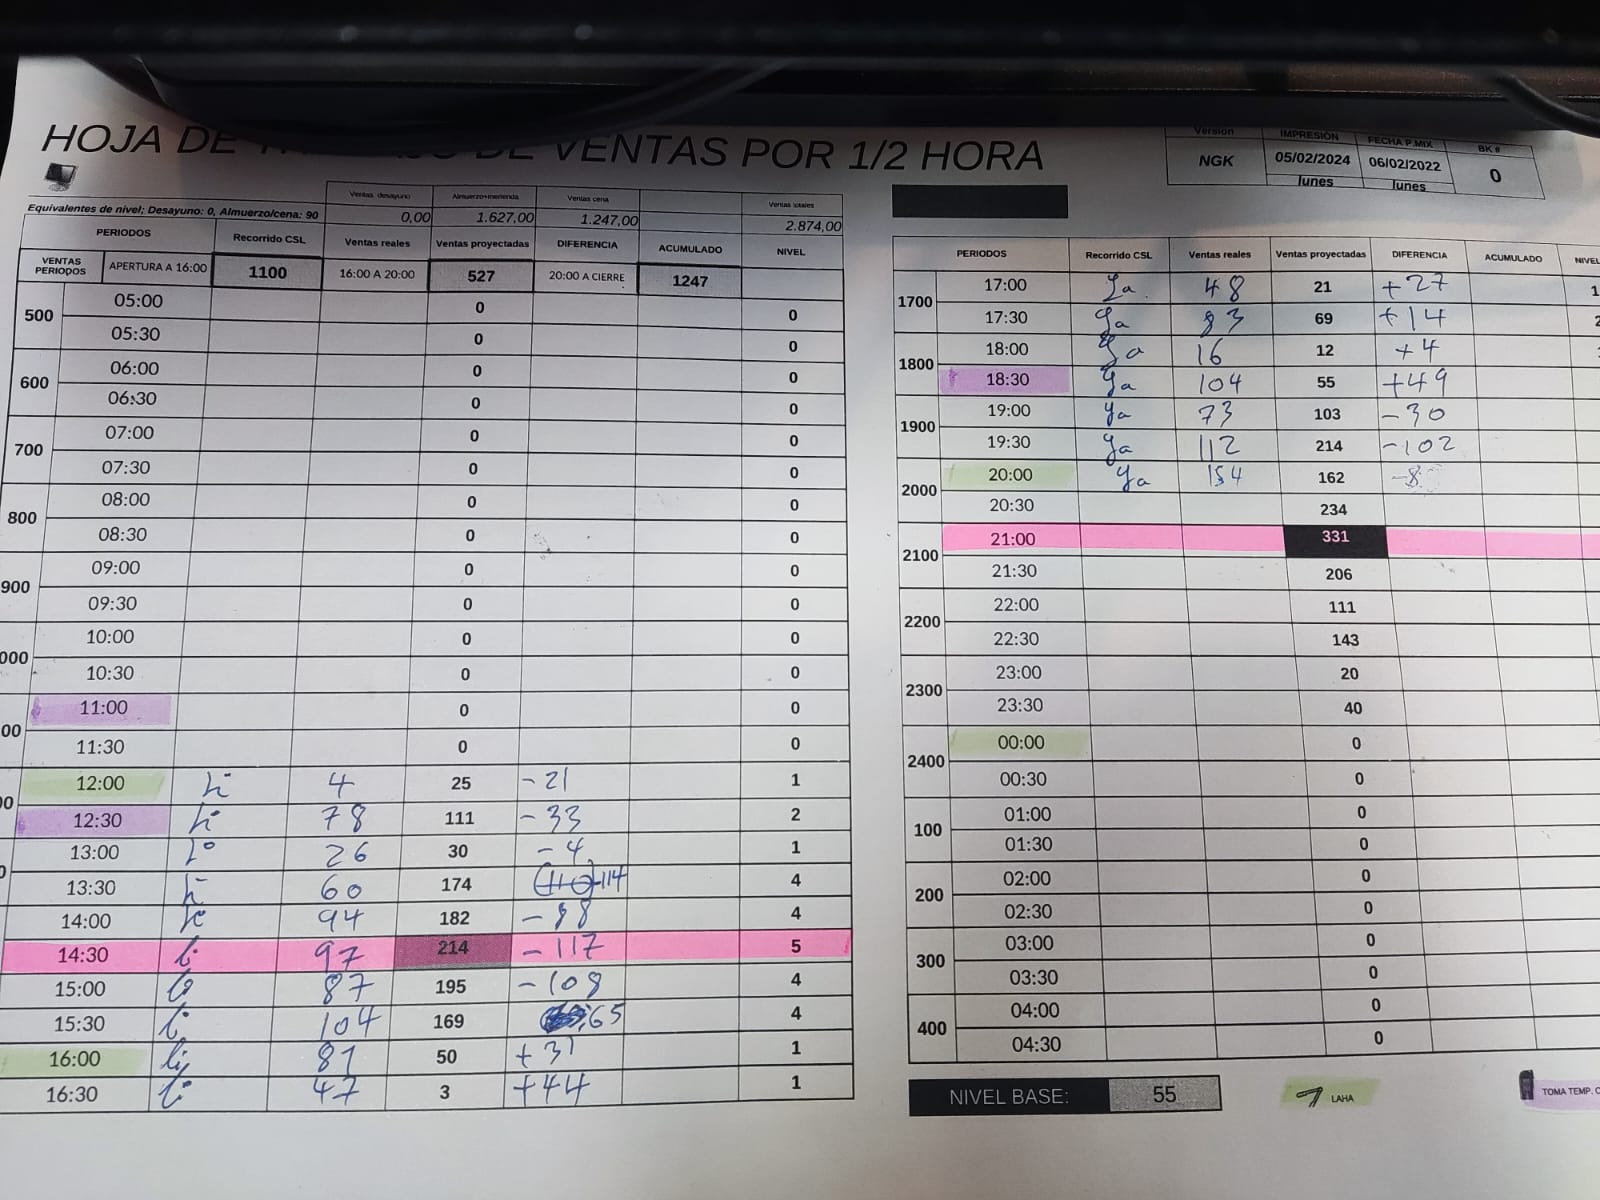 HOJA DE TRABAJO DE VENTAS POR 1/2 HORA
Versión IMPRESIÓN FECHA P.MIX BK #
NGK 05/02/2024 06/02/2022 0
lunes lunes
Ventas desayuno Almuerzo+merienda Ventas cena Ventas totales
Equivalentes de nivel; Desayuno: 0, Almuerzo/cena: 90 0,00 1.627,00 1.247,00 2.874,00
PERIODOS Recorrido CSL Ventas reales Ventas proyectadas DIFERENCIA ACUMULADO NIVEL
VENTAS PERIODOS APERTURA A 16:00 1100 16:00 A 20:00 527 20:00 A CIERRE 1247
500 05:00 0 0
05:30 0 0
600 06:00 0 0
06:30 0 0
700 07:00 0 0
07:30 0 0
800 08:00 0 0
08:30 0 0
900 09:00 0 0
09:30 0 0
000 10:00 0 0
10:30 0 0
00 11:00 0 0
11:30 0 0
00 12:00 4 25 -21 1
12:30 78 111 -33 2
13:00 26 30 -4 1
13:30 60 174 -114 4
14:00 94 182 -88 4
14:30 97 214 -117 5
15:00 87 195 -108 4
15:30 104 169 65 4
16:00 81 50 +31 1
16:30 47 3 +44 1
PERIODOS Recorrido CSL Ventas reales Ventas proyectadas DIFERENCIA ACUMULADO NIVEL
1700 17:00 Ya 48 21 +27 1
17:30 Ya 83 69 +14 2
1800 18:00 Ya 16 12 +4
18:30 Ya 104 55 +49
1900 19:00 Ya 73 103 -30
19:30 Ya 112 214 -102
2000 20:00 Ya 154 162 -8
20:30 234
2100 21:00 331
21:30 206
2200 22:00 111
22:30 143
2300 23:00 20
23:30 40
2400 00:00 0
00:30 0
100 01:00 0
01:30 0
200 02:00 0
02:30 0
300 03:00 0
03:30 0
400 04:00 0
04:30 0
NIVEL BASE: 55 LAHA TOMA TEMP. C